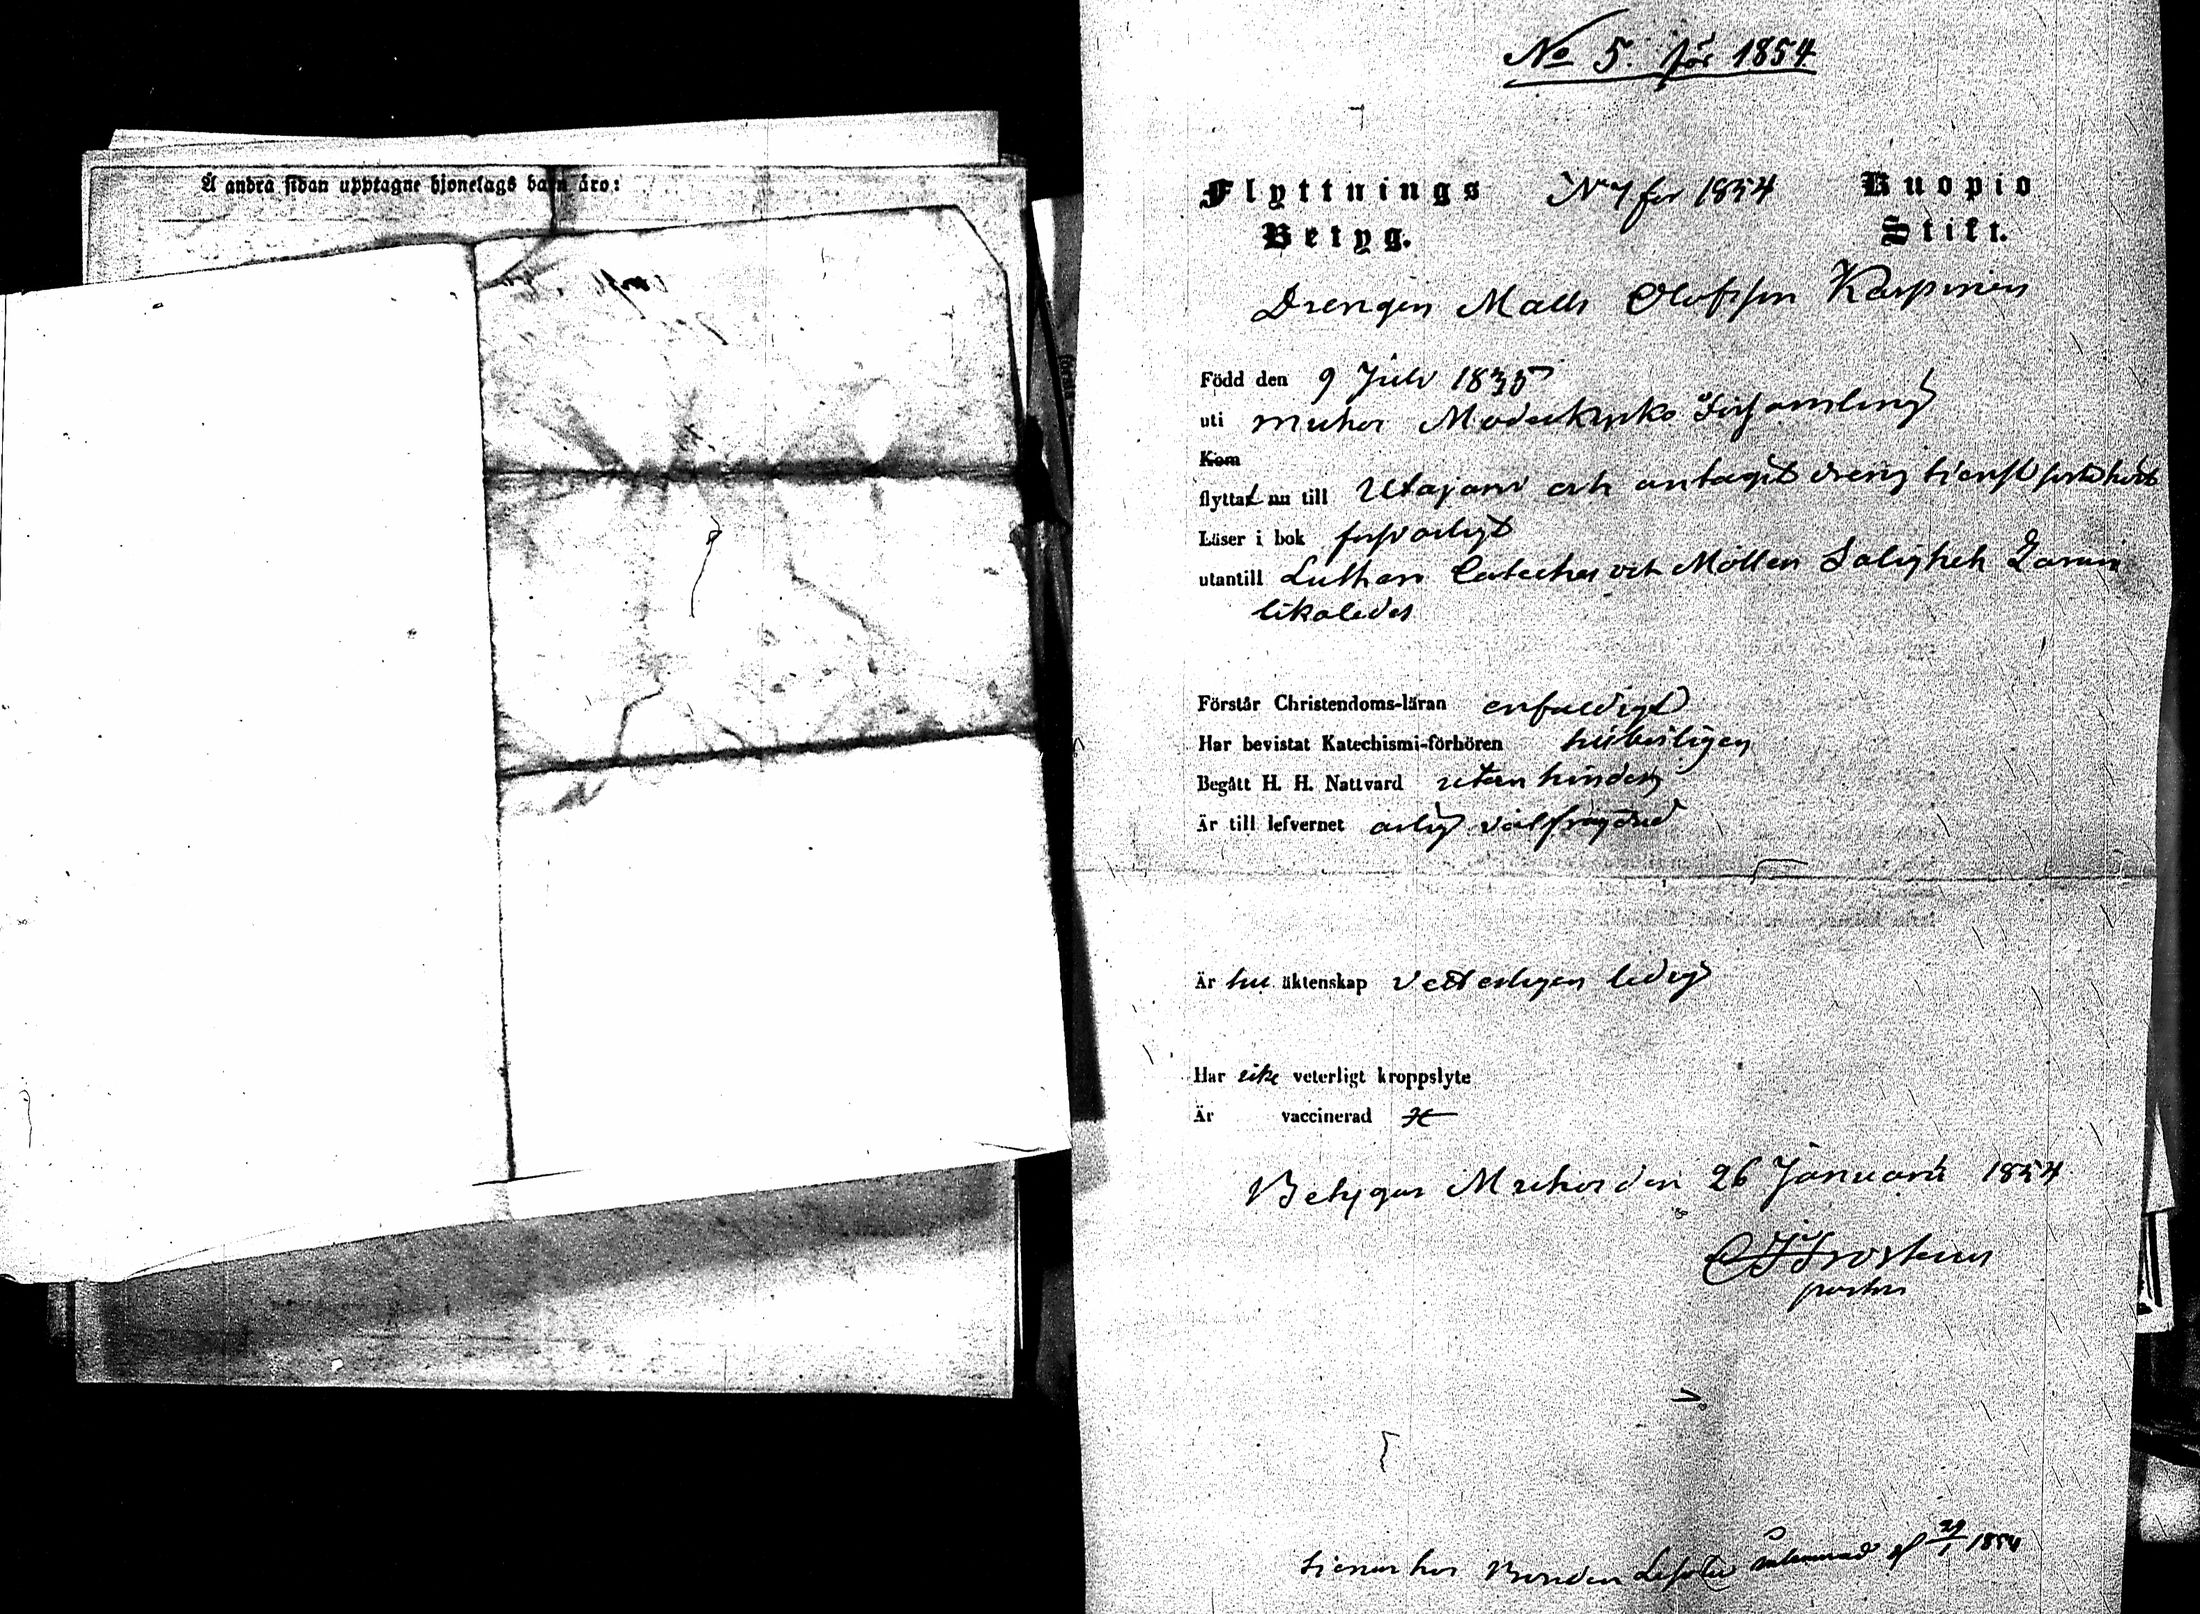 Å andra sidan upptagne hjonelags barn äro:
No 5. för 1854
Flyttnings Betyg.
N 7 for 1854
Kuopio Stift.
Drengen Matts Olofsson Karpinen
Född den 9 Juli 1835
uti Muhos Moderkyrko Församling
Kom
flyttat nu till Utajärvi och antagit dreng tienst
Läser i bok försvarligt
utantill Lutheri Cateches och Möllers Salighets
likaledes
Förstår Christendoms-läran enfaldigt
Har bevistat Katechismi-förhören
Begått H. H. Nattvard utan hinder
Är till lefvernet ärlig välfrägdad
Är till äktenskap vetterligen ledig
Har icke veterligt kroppslyte
Är vaccinerad
Betygar Muhos den 26 Januarii 1854
Frosterus
pastor
tienar hos Bonden 29/1 1854